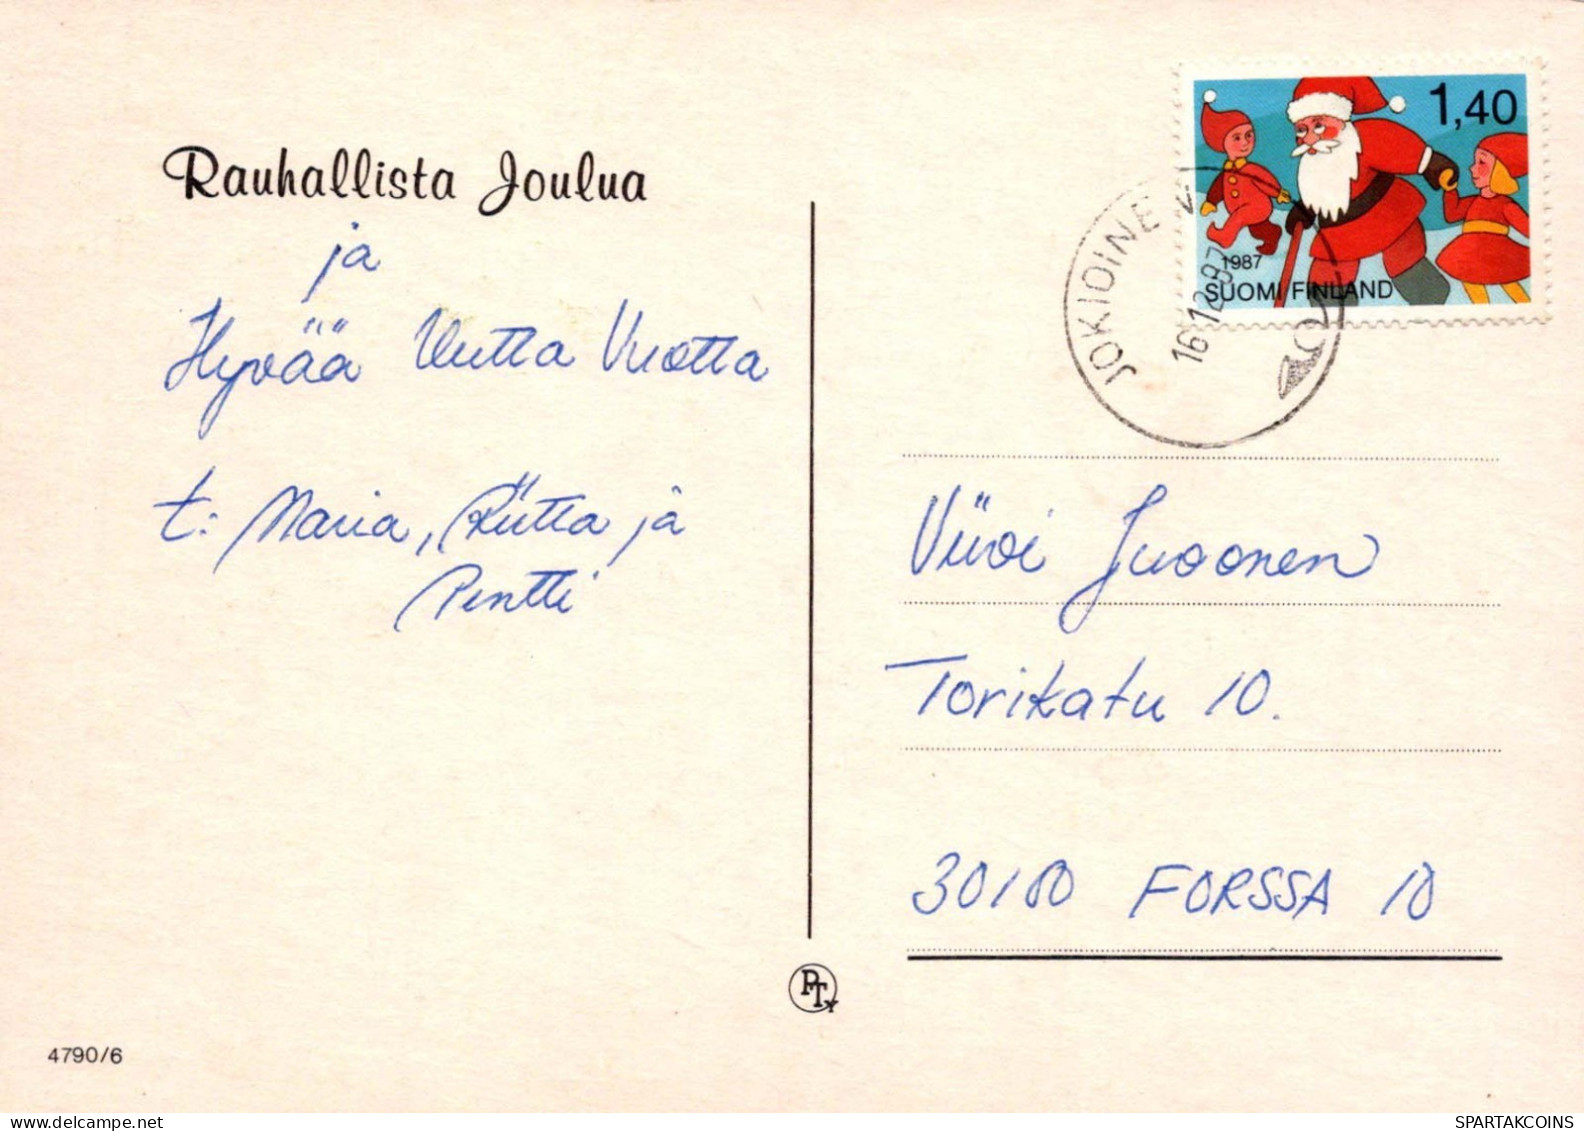 Rauhallista Joulua
ja
Hyvää Uutta Vuotta
t: Maria, Riitta ja
Pentti
1,40
1987
SUOMI FINLAND
JOKIOINE
16.12.87
Torikatu 10.
30100 FORSSA 10
PTy
4790/6
SPARTAKCOINS